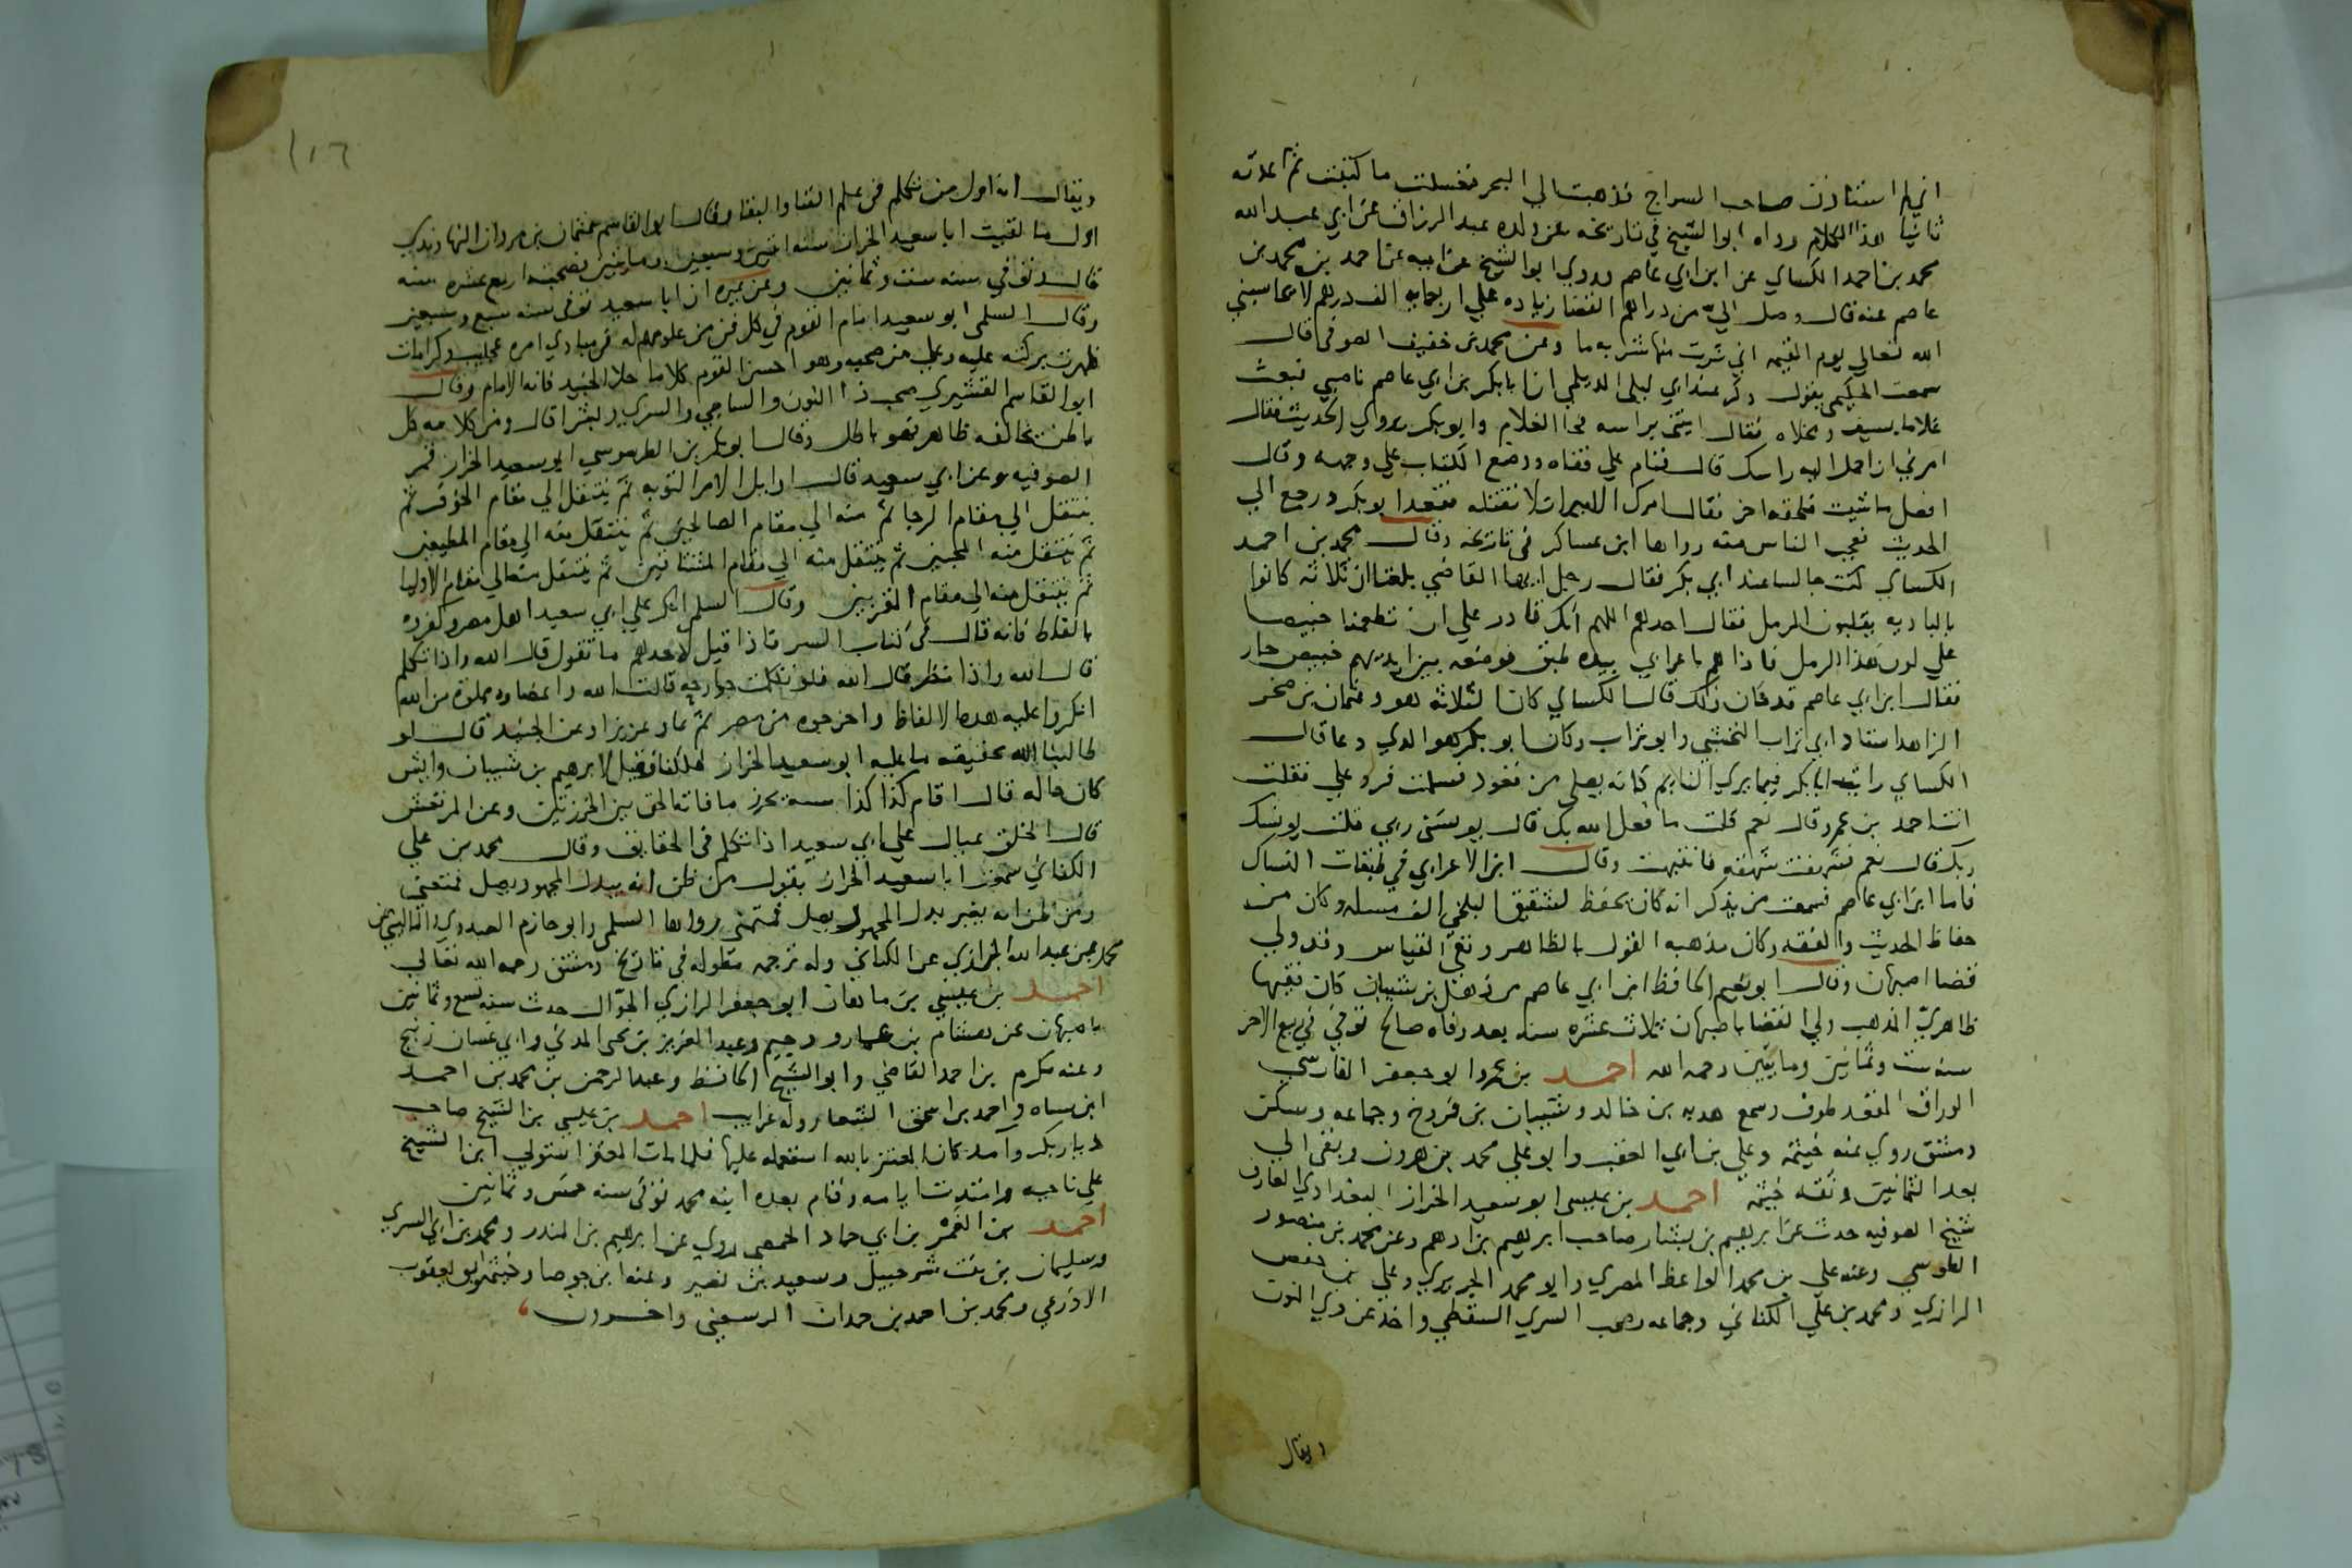 اني لم استاذن صاحب السراج فذهبت الي البحر فغسلت ما كتبت ثم اعدته
ثانيا هذا الكلام رواه ابو الشيخ في تاريخه عن ولده عبد الرزاق عن ابي عبد الله
محمد بن احمد الكساي عن ابن ابي عاصم وروي ابو الشيخ عن ابيه عن احمد بن محمد بن
عاصم عنه قال وصل الي من دراهم القضا زياده علي اربعمايه الف درهم لا يحاسبني
الله تعالي يوم القيمه اني شربت منها شربه ما وعن محمد بن خفيف الصوفي قال
سمعت الحكيمي يقول ذكر عند ابي ليلي الديلمي ان ابا بكر بن ابي عاصم ناصبي فبعث
غلاما بسيف ومخلاه فقال ايتني براسه فجا الغلام وابو بكر يروي الحديث فقال
امرني ان احمل اليه راسك قال فنام علي قفاه ووضع الكتاب علي وجهه وقال
افعل ما شيت فلحقه اخر فقال امرك الامير ان لا تقتله فقعد ابو بكر ورجع الي
الحديث فعجب الناس منه رواها ابن عساكر في تاريخه وقال محمد بن احمد
الكساي كنت جالسا عند ابي بكر فقال رجل ايها القاضي بلغنا ان ثلاثه كانوا
بالباديه يقلبون الرمل فقال احدهم اللهم انك قادر علي ان تطعمنا خبيصا
علي لون هذا الرمل فاذا هم باعرابي بيده طبق فوضعه بين ايديهم خبيص حار
فقال ابن ابي عاصم قد كان ذلك قال الكساي كان الثلاثه هو وعثمان بن صخر
الزاهد استاد ابي تراب النخشبي وابو تراب وكان ابو بكر هو الذي دعا قال
الكساي رايت ابا بكر فيما يري النايم كانه يصلي من قعود فسلمت فرد علي فقلت
انت احمد بن عمرو قال نعم قلت ما فعل الله بك قال يونسني ربي قلت يونسك
ربك قال نعم فشهقت شهقه فانتبهت وقال ابن الاعرابي في طبقات النساك
فاما ابن ابي عاصم فسمعت من يذكر انه كان يحفظ لشقيق البلخي الف مسله وكان من
حفاظ الحديث والفقه وكان مذهبه القول بالظاهر ونفي القياس وقد ولي
قضا اصبهان وقال ابو نعيم الحافظ ابن ابي عاصم من ذهل بن شيبان كان فقيها
ظاهري المذهب ولي القضا باصبهان ثلاث عشره سنه بعد وفاه صالح توفي في ربيع الاخر
سنه ست وثمانين ومايتين رحمه الله احمد بن عمرو ابو جعفر الفارسي
الوراق المقعد طوف وسمع هدبه بن خالد وشيبان بن فروخ وجماعه وسكن
دمشق روي عنه خيثمه وعلي بن ابي العقب وابو علي محمد بن هرون وبقي الي
بعد الثمانين وثقه خيثمه احمد بن عيسي ابو سعيد الخراز البغدادي العارف
شيخ الصوفيه حدث عن ابرهيم بن بشار صاحب ابرهيم بن ادهم وعن محمد بن منصور
الطوسي وعنه علي بن محمد الواعظ المصري وابو محمد الجريري وعلي بن حفص
الرازي ومحمد بن علي الكتاني وجماعه وصحب السري السقطي واخذ عن ذي النون
ويقال
١١٦
ويقال انه اول من تكلم في علم الفنا والبقا وقال ابو القاسم عثمان بن مروان النهاوندي
اول ما لقيت ابا سعيد الخراز سنه اثنين وسبعين ومايتين فصحبته اربع عشره سنه
قال توفي سنه ست وثمانين وعن غيره ان ابا سعيد توفي سنه سبع وسبعين
وقال السلمي ابو سعيد امام القوم في كل فن من علومهم له في مبادي امره عجايب وكرامات
ظهرت بركته عليه وعلي من صحبه وهو احسن القوم كلاما خلا الجنيد فانه الامام وقال
ابو القاسم القشيري صحب ذا النون والساجي والسري وبشرا قال ومن كلامه كل
باطن يخالفه ظاهر فهو باطل وقال ابو بكر بن الطرسوسي ابو سعيد الخراز قمر
الصوفيه وعن ابي سعيد قال اوايل الامر التوبه ثم ينتقل الي مقام الخوف ثم
ينتقل الي مقام الرجا ثم منه الي مقام الصالحين ثم ينتقل منه الي مقام المطيعين
ثم ينتقل منه المحبين ثم ينتقل منه الي مقام المشتاقين ثم ينتقل منه الي مقام الاوليا
ثم ينتقل منه الي مقام المقربين وقال السلمي انكر علي ابي سعيد اهل مصر وكفروه
بالفاظ فانه قال في كتاب السر فاذا قيل لاحدهم ما تقول قال الله واذا تكلم
قال الله واذا نظر قال الله فلو تكلمت جوارحه قالت الله واعضاوه مملوة من الله
انكروا عليه هذه الالفاظ واخرجوه من مصر ثم عاد عزيزا وعن الجنيد قال لو
طالبنا الله بحقيقه ما عليه ابو سعيد الخراز لهلكنا فقيل لابرهيم بن شيبان وايش
كان حاله قال اقام كذا كذا سنة يخرز ما فاته الحق بين الخرزتين وعن المرتعش
قال الخلق عيال علي ابي سعيد اذا تكلم في الحقايق وقال محمد بن علي
الكتاني سمعت ابا سعيد الخراز يقول من ظن انه ببذل المجهود يصل فمتعني
ومن ظن انه بغير بذل المجهود يصل فمتمني رواها السلمي وابو حازم العبدوي
محمد بن عبد الله الرازي عن الكتاني وله ترجمه مطوله في تاريخ دمشق رحمه الله تعالي
احمد بن عيسي بن ماهان ابو جعفر الرازي الجوال حدث سنه تسع وثمانين
باصبهان عن هشام بن عمار ودحيم وعبد العزيز بن يحيي المدني وابي غسان زنيج
وعنه مكرم بن احمد القاضي وابو الشيخ الحافظ وعبد الرحمن بن محمد بن احمد
ابن سياه واحمد بن اسحق الشعار وله غرايب احمد بن عيسي بن الشيخ صاحب
ديار بكر وآمد كان المعتز بالله استعمله عليها فلما مات المعتز استولي ابن الشيخ
علي ناحيه وامتدت ايامه وقام بعده ابنه محمد توفي سنه خمس وثمانين
احمد بن الغمر بن ابي حماد الحمصي روي عن ابرهيم بن المنذر ومحمد بن ابي السري
وسليمان بن بنت شرحبيل وسعيد بن نصير وعنه ابن جوصا وخيثمه وابو يعقوب
الاذرعي ومحمد بن احمد بن حمدان الرسعني واخرون